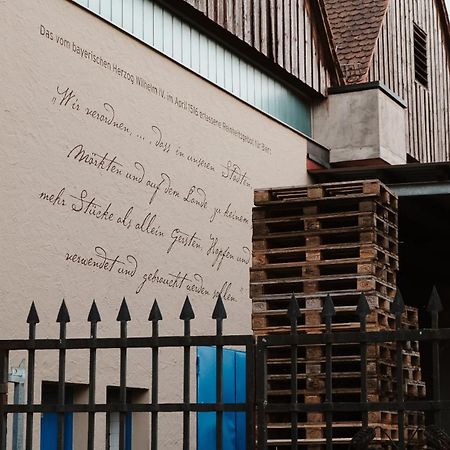 Das vom bayerischen Herzog Wilhelm IV. im April 1516 erlassene Reinheitsgebot für Bier:
"Wir verordnen, ... dass in unseren Städten,
Märkten und auf dem Lande zu keinem
mehr Stücke als allein Gersten, Hopfen und
verwendet und gebraucht werden sollen."